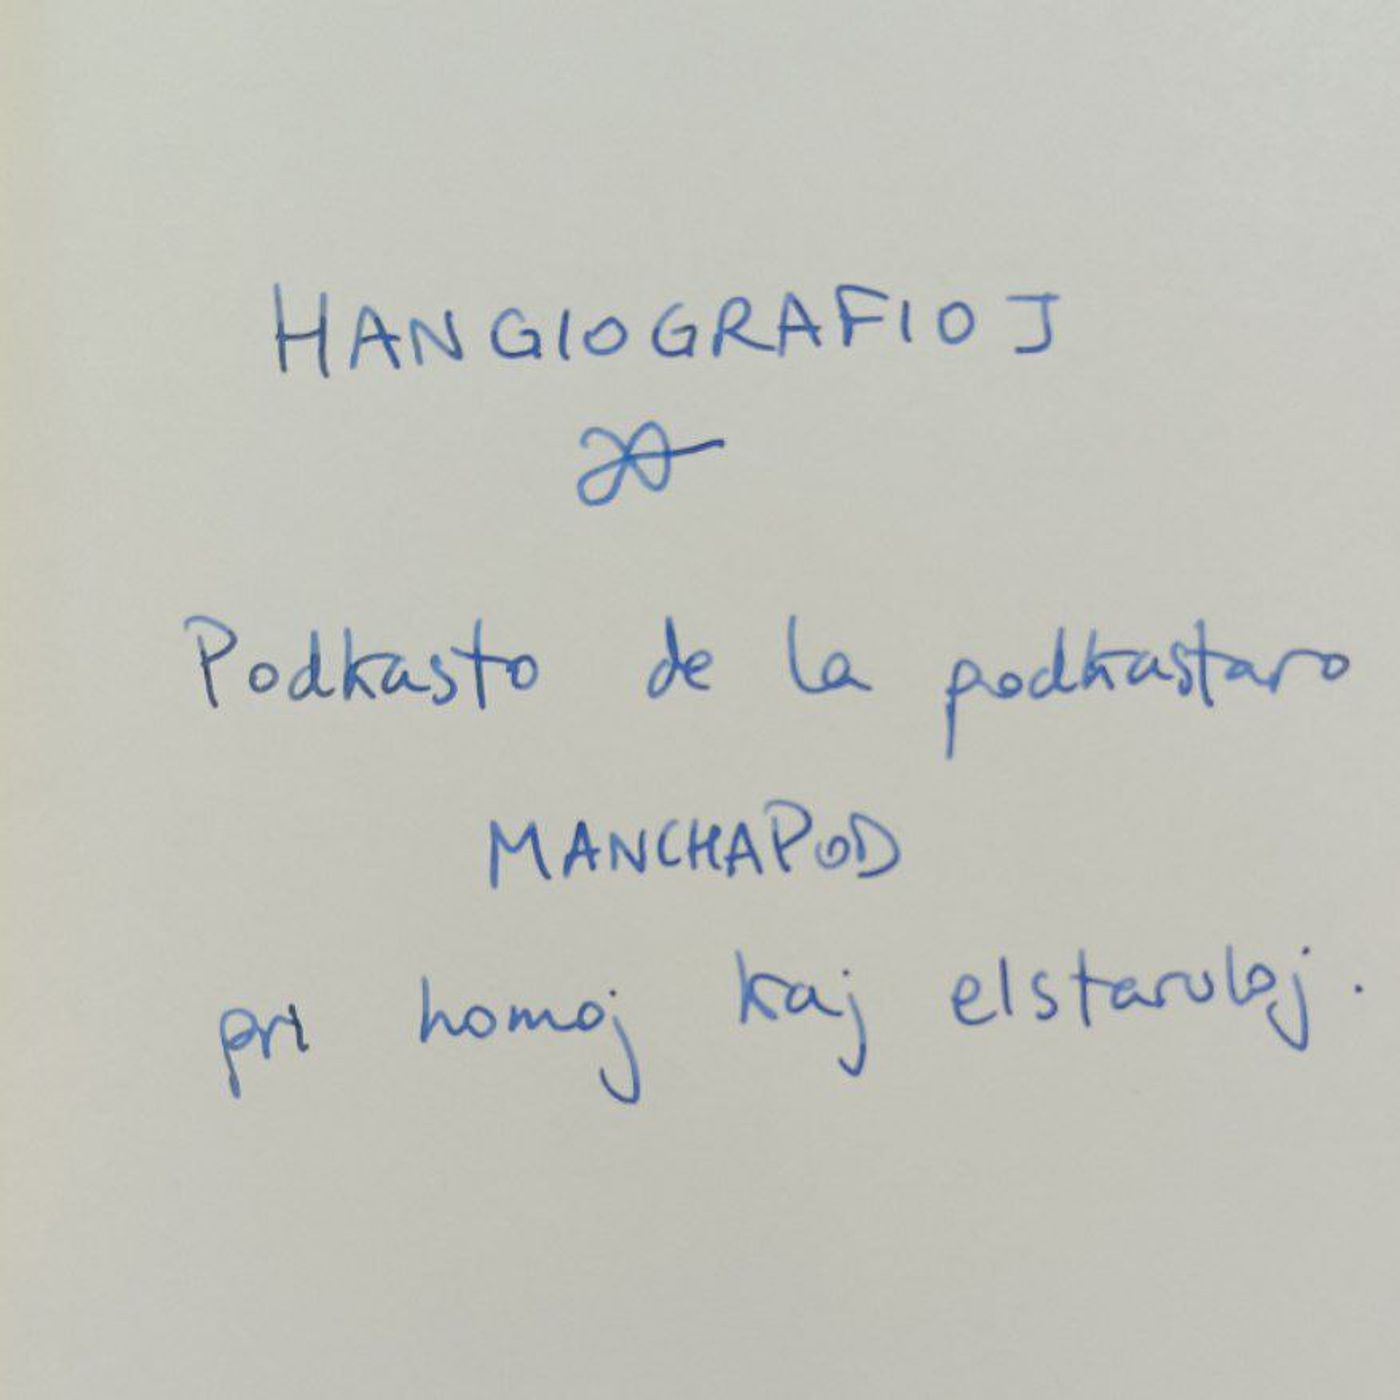 HANGIOGRAFIOJ
Podkasto de la podkastaro
MANCHAPOD
pri homoj kaj elstaruloj.